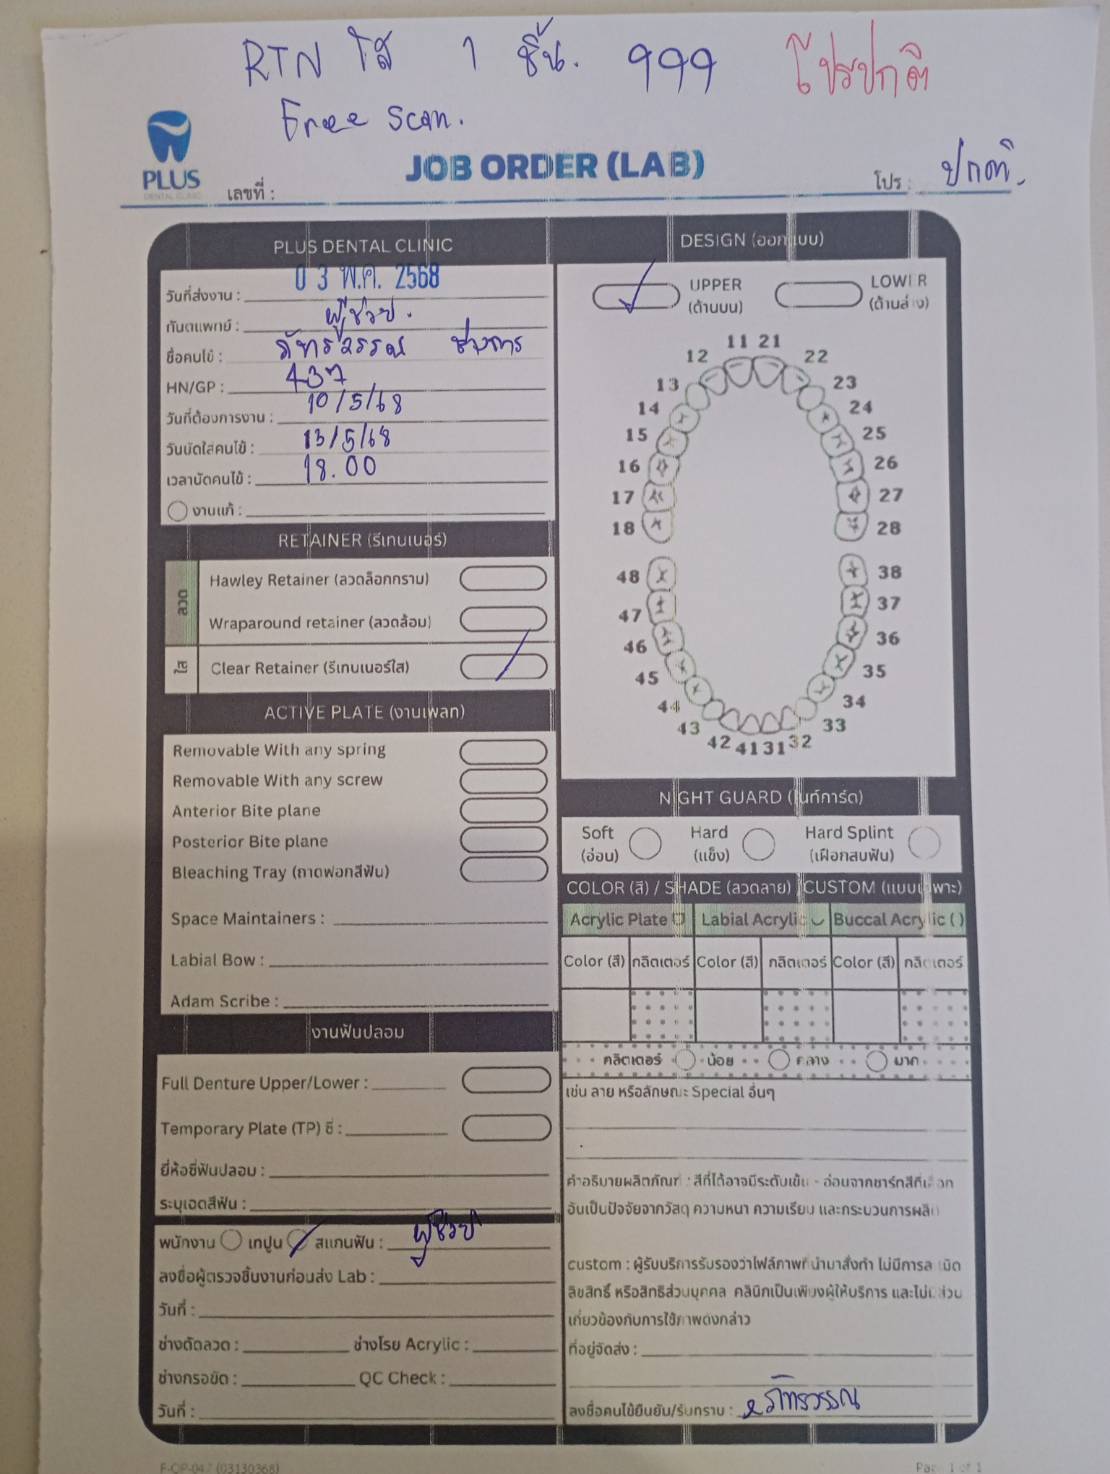 RTN ใส 1 ชิ้น. 999 โปรปกติ
Free Scan.
PLUS
DENTAL CLINIC
JOB ORDER (LAB)
เลขที่ :
โปร : ปกติ.
PLUS DENTAL CLINIC
วันที่ส่งงาน : 0 3 พ.ค. 2568
ทันตแพทย์ : ผู้ช่วย.
ชื่อคนไข้ : ภัทรวรรณ
HN/GP : 437
วันที่ต้องการงาน : 10/5/68
วันนัดใส่คนไข้ : 13/5/68
เวลานัดคนไข้ : 18.00
งานแก้ :
RETAINER (รีเทนเนอร์)
ลวด
Hawley Retainer (ลวดล็อกกราม)
Wraparound retainer (ลวดล้อม)
ใส
Clear Retainer (รีเทนเนอร์ใส)
ACTIVE PLATE (งานเพลท)
Removable With any spring
Removable With any screw
Anterior Bite plane
Posterior Bite plane
Bleaching Tray (ถาดฟอกสีฟัน)
Space Maintainers :
Labial Bow :
Adam Scribe :
งานฟันปลอม
Full Denture Upper/Lower :
Temporary Plate (TP) ซี่ :
ยี่ห้อซี่ฟันปลอม :
ระบุเฉดสีฟัน :
พนักงาน เทปูน สแกนฟัน : ผู้ช่วย
ลงชื่อผู้ตรวจชิ้นงานก่อนส่ง Lab :
วันที่ :
ช่างดัดลวด : ช่างโรย Acrylic :
ช่างกรอขัด : QC Check :
วันที่ :
DESIGN (ออกแบบ)
UPPER
(ด้านบน)
LOWER
(ด้านล่าง)
11 21
12 22
13 23
14 24
15 25
16 26
17 27
18 28
48 38
47 37
46 36
45 35
44 34
43 33
42 41 31 32
NIGHT GUARD (ไนท์การ์ด)
Soft
(อ่อน)
Hard
(แข็ง)
Hard Splint
(เฝือกสบฟัน)
COLOR (สี) / SHADE (ลวดลาย) /CUSTOM (แบบเฉพาะ)
Acrylic Plate Labial Acrylic Buccal Acrylic ( )
Color (สี) กลิตเตอร์ Color (สี) กลิตเตอร์ Color (สี) กลิตเตอร์
กลิตเตอร์ น้อย กลาง มาก
เช่น ลาย หรือลักษณะ Special อื่นๆ
คำอธิบายผลิตภัณฑ์ : สีที่ได้อาจมีระดับเข้ม - อ่อนจากชาร์ทสีที่เลือก
อันเป็นปัจจัยจากวัสดุ ความหนา ความเรียบ และกระบวนการผลิต
custom : ผู้รับบริการรับรองว่าไฟล์ภาพที่นำมาสั่งทำ ไม่มีการละเมิด
ลิขสิทธิ์ หรือสิทธิส่วนบุคคล คลินิกเป็นเพียงผู้ให้บริการ และไม่มีส่วน
เกี่ยวข้องกับการใช้ภาพดังกล่าว
ที่อยู่จัดส่ง :
ลงชื่อคนไข้ยืนยัน/รับทราบ : ภัทรวรรณ
F-OP-047 (03130368)
Page 1 of 1